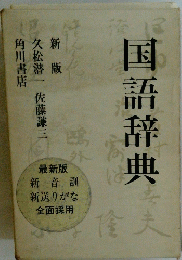 国語辞典
新版
久松潜一 佐藤謙三
角川書店
最新版
新音訓
新送りがな
全面採用